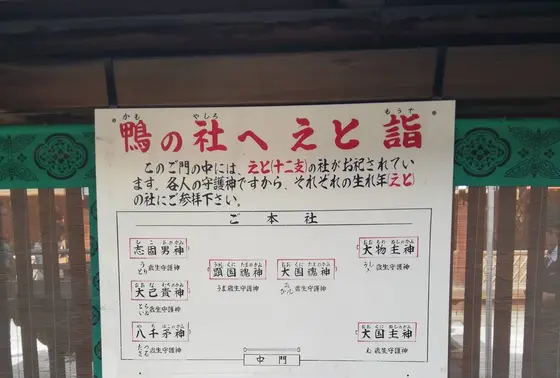 かも やしろ
鴨の社へえと詣
このご門の中には、えと(十二支)の社がお祀されてい
ます。各人の守護神ですから、それぞれの生れ年(えと)
の社にご参拝下さい。
ご本社
志固男神
うとり歳生守護神
大己貴神
歳生守護神
八千矛神
歳生守護神
顕国魂神
うま歳生守護神
大国魂神
みひつじ歳生守護神
大物主神
歳生守護神
大国主神
歳生守護神
中門